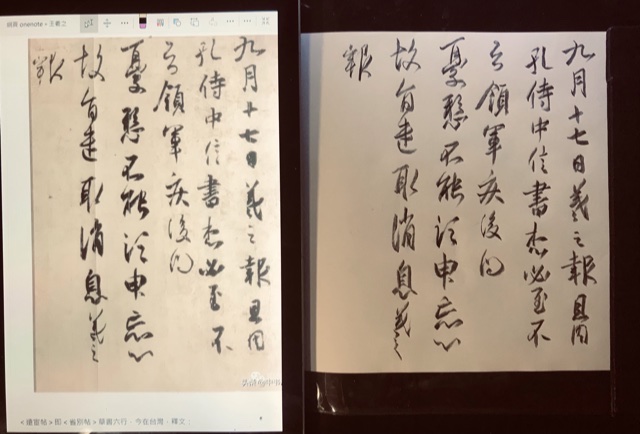 王羲之
九月十七日羲之報且因
孔侍中信書想必至不
知領軍疾後問
憂懸不能須臾忘心
故旨遣取消息羲之
報
<遠宦帖>即<省別帖>草書六行，今在台灣。釋文：
九月十七日羲之報且因
孔侍中信書想必至不
知領軍疾後問
憂懸不能須臾忘心
故旨遣取消息羲之
報